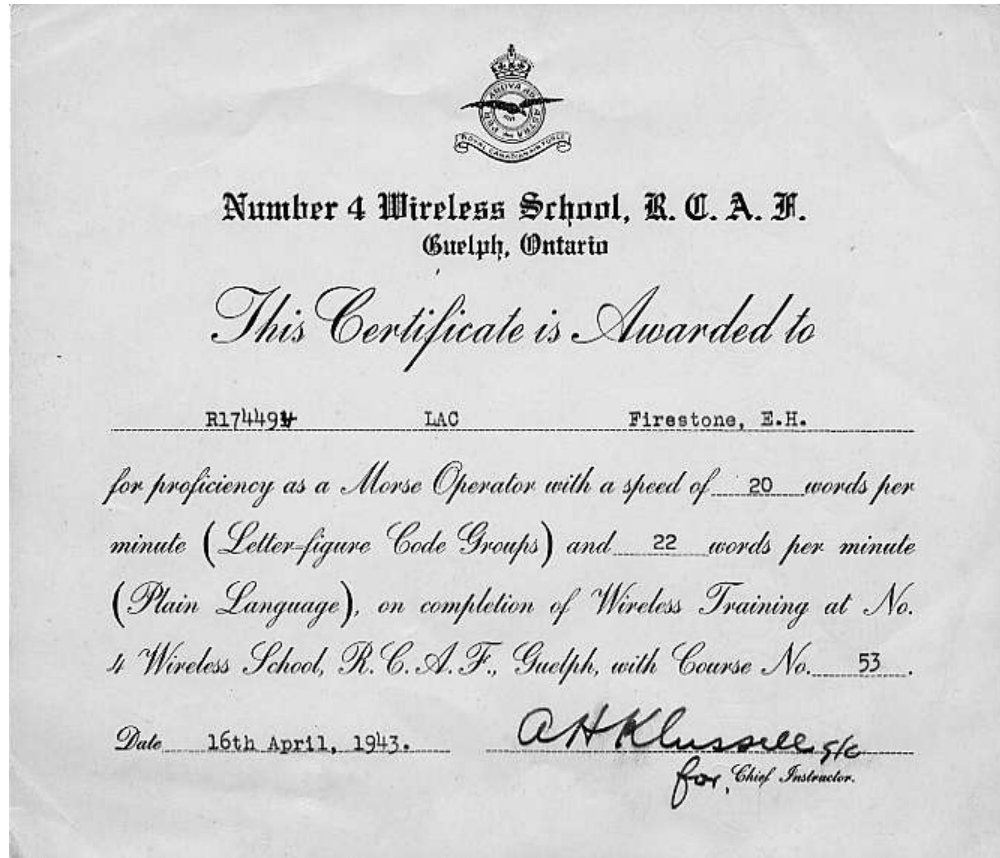 PER ARDUA AD ASTRA
ROYAL CANADIAN AIR FORCE
Number 4 Wireless School, R. C. A. F.
Guelph, Ontario
This Certificate is Awarded to
LAC Firestone, E.H.
for proficiency as a Morse Operator with a speed of 20 words per
minute (Letter-figure Code Groups) and 22 words per minute
(Plain Language), on completion of Wireless Training at No.
4 Wireless School, R.C.A.F., Guelph, with Course No. 53.
Date 16th April, 1943.
for, Chief Instructor.